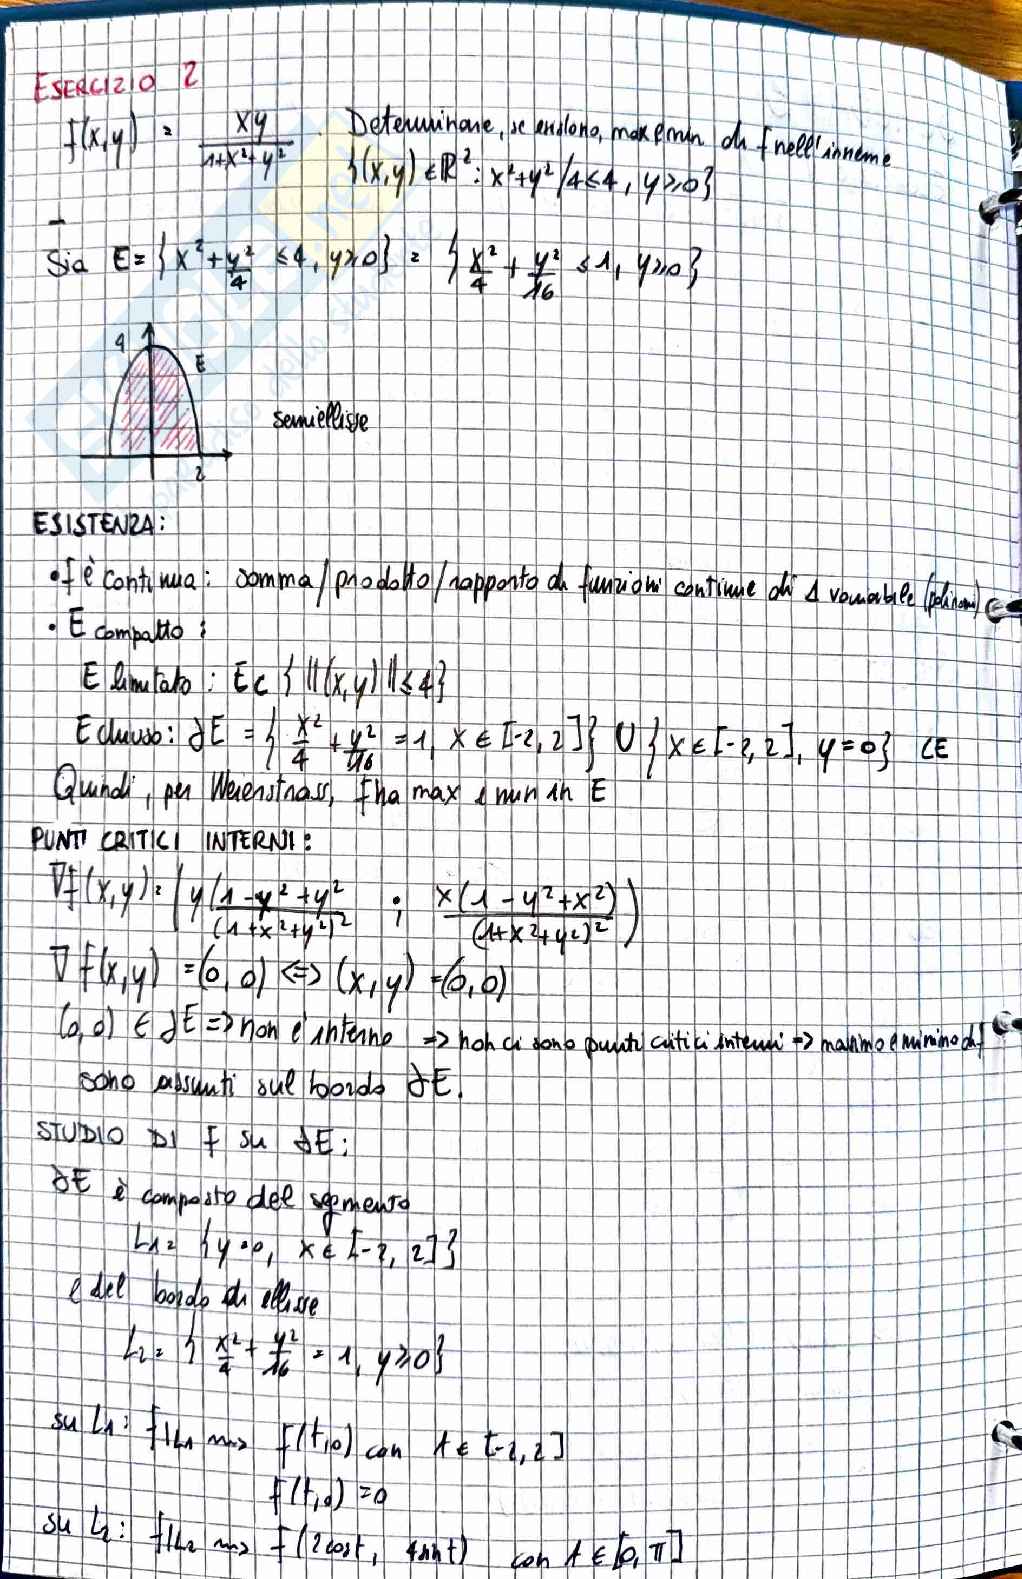 ESERCIZIO 2
f(x,y) = xy / 1+x²+y² . Determinare, se esistono, max e min di f nell'insieme
{(x,y) ∈ ℝ² : x²+y²/4 ≤ 4, y ≥ 0}
Sia E = { x² + y²/4 ≤ 4, y ≥ 0 } = { x²/4 + y²/16 ≤ 1, y ≥ 0 }
4
E
semiellisse
2
ESISTENZA:
• f è continua: somma/prodotto/rapporto di funzioni continue di 1 variabile (polinomi)
• E compatto:
E limitato: E ⊂ { ||(x,y)|| ≤ 4 }
E chiuso: ∂E = { x²/4 + y²/16 = 1, x ∈ [-2, 2] } ∪ { x ∈ [-2, 2], y = 0 } ⊂ E
Quindi, per Weierstrass, f ha max e min in E
PUNTI CRITICI INTERNI:
∇f(x,y) = ( y(1-x²+y² / (1+x²+y²)² ; x(1-y²+x²) / (1+x²+y²)² )
∇f(x,y) = (0,0) <=> (x,y) = (0,0)
(0,0) ∈ ∂E => non è interno => non ci sono punti critici interni => massimo e minimo di f
sono assunti sul bordo ∂E.
STUDIO DI f SU ∂E:
∂E è composto del segmento
L1 = { y=0, x ∈ [-2, 2] }
e del bordo di ellisse
L2 = { x²/4 + y²/16 = 1, y ≥ 0 }
su L1: f|L1 ~> f(t,0) con t ∈ [-2, 2]
f(t,0) = 0
su L2: f|L2 ~> f(2cost, 4sint) con t ∈ [0, π]